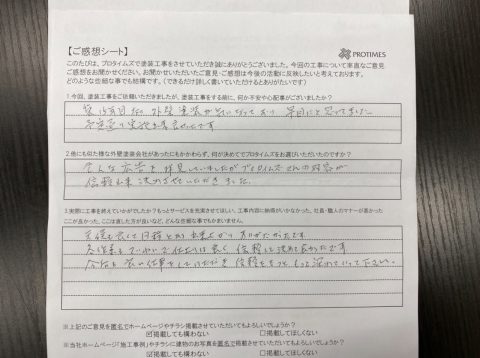 【ご感想シート】
PROTIMES
このたびは、プロタイムズで塗装工事をさせていただき誠にありがとうございました。今回の工事について率直なご意見、
ご感想をお聞かせください。お聞かせいただいたご意見・ご感想は今後の活動に反映したいと考えております。
どのような些細な事でも結構です。(できるだけ詳しく書いていただけるとありがたいです)
1.今回、塗装工事をご依頼いただきましたが、塗装工事をする前に、何か不安や心配事がございましたか?
外壁塗装が 早目にと思ってました
2.他にも似た様な外壁塗装会社があったにもかかわらず、何が決めてでプロタイムズをお選びいただいたのですか?
広告を拝見していましたがプロタイムズさんの対応が
信頼出来 決めさせていただきました。
3.実際に工事を終えていかがでしたか?もっとサービスを充実させてほしい、工事内容に納得がいかなかった、社員・職人のマナーが悪かった
ここが良かった、ここは直した方が良いなど、どんな些細な事でもかまいません。
天候も良くて日程とおり出来上がりありがたかったです
仕上りも良く信頼して決めて良かったです
今后も良い仕事をしていただき信頼をもっともっと深めていって下さい。
※上記のご意見を匿名でホームページやチラシに掲載させていただいてもよろしいでしょうか?
☑掲載しても構わない □掲載してほしくない
※当社ホームページ「施工事例」やチラシに建物のお写真を匿名で掲載させていただいてもよろしいでしょうか?
☑掲載しても構わない □掲載してほしくない